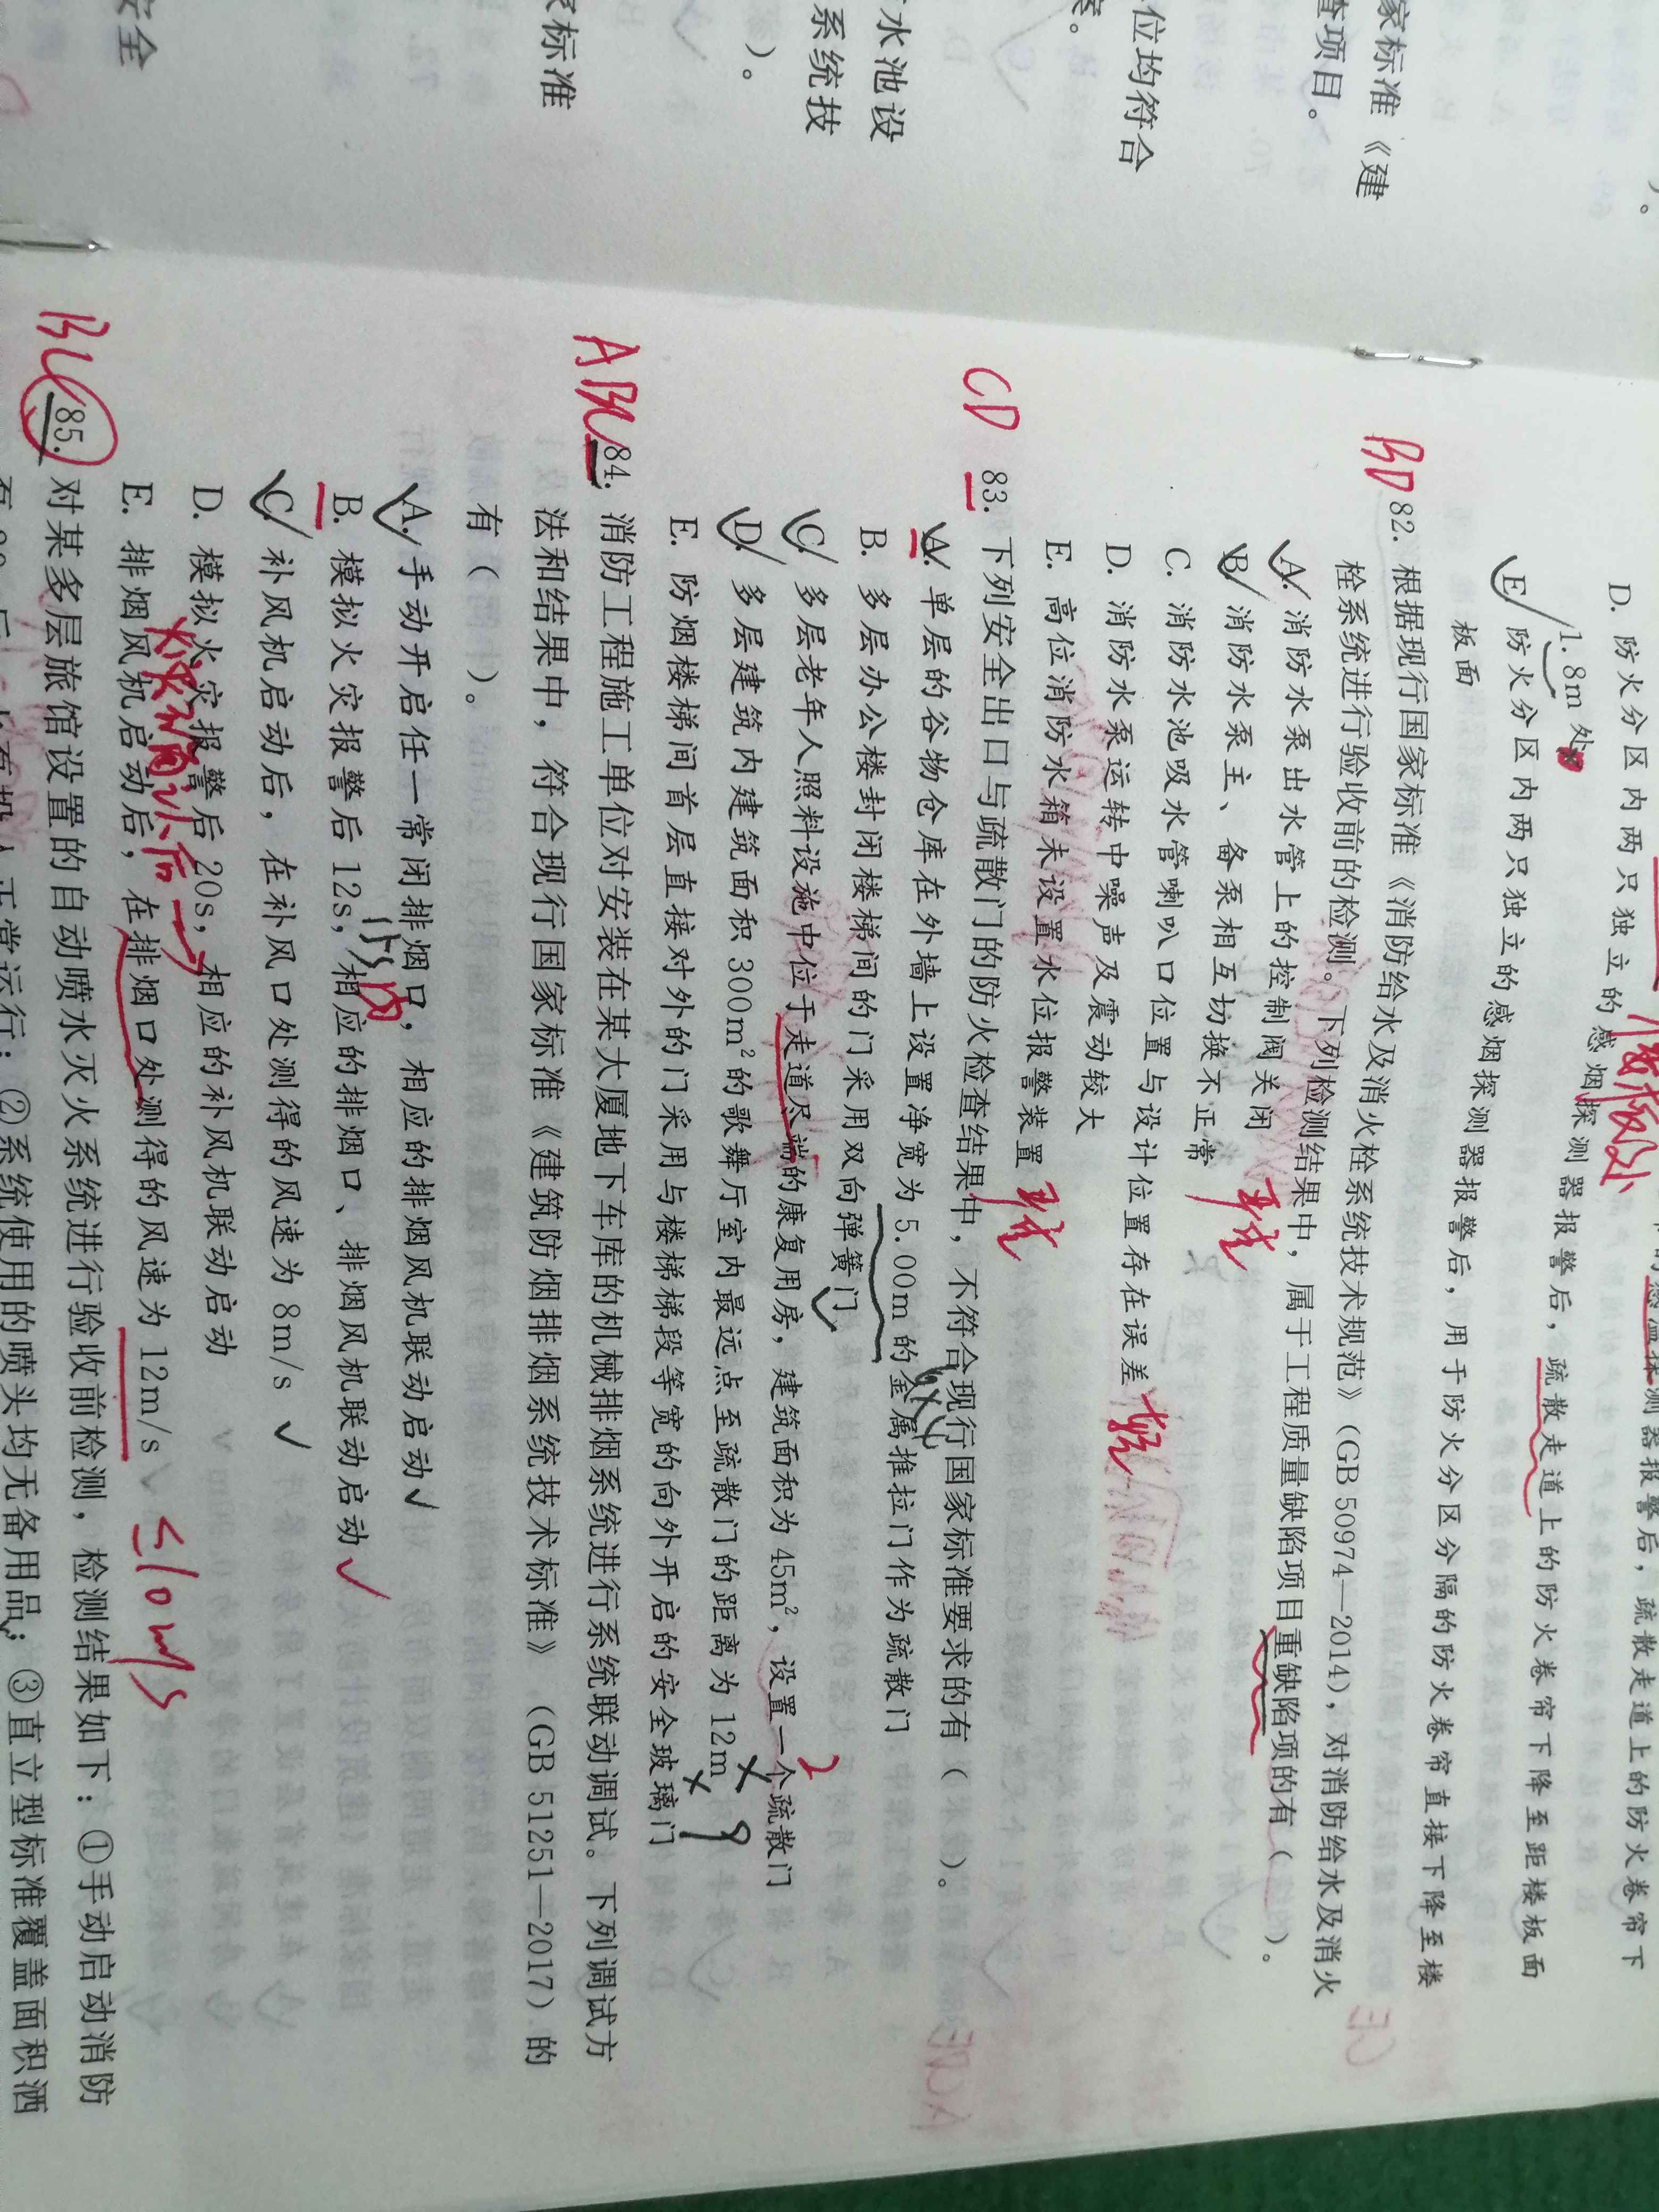 ）。
家标准《建
查项目。
位均符合
水池设
系统技
）。
家标准
安全
D. 防火分区内两只独立的感烟探测器报警后，疏散走道上的防火卷帘下降至距楼板面
1.8m 处
E. 防火分区内两只独立的感烟探测器报警后，用于防火分区分隔的防火卷帘直接下降至楼
板面
BD
82. 根据现行国家标准《消防给水及消火栓系统技术规范》（GB 50974—2014），对消防给水及消火
栓系统进行验收前的检测。下列检测结果中，属于工程质量缺陷项目重缺陷项的有（ ）。
A. 消防水泵出水管上的控制阀关闭
B. 消防水泵主、备泵相互切换不正常
C. 消防水池吸水管喇叭口位置与设计位置存在误差
轻
D. 消防水泵运转中噪声及震动较大
E. 高位消防水箱未设置水位报警装置
CD
83. 下列安全出口与疏散门的防火检查结果中，不符合现行国家标准要求的有（ ）。
A. 单层的谷物仓库在外墙上设置净宽为 5.00m 的金属推拉门作为疏散门
B. 多层办公楼封闭楼梯间的门采用双向弹簧门
C. 多层老年人照料设施中位于走道尽端的康复用房，建筑面积为 45m²，设置一个疏散门
2
D. 多层建筑内建筑面积 300m² 的歌舞厅室内最远点至疏散门的距离为 12m
× 9
E. 防烟楼梯间首层直接对外的门采用与楼梯梯段等宽的向外开启的安全玻璃门
×
ABC
84. 消防工程施工单位对安装在某大厦地下车库的机械排烟系统进行系统联动调试。下列调试方
法和结果中，符合现行国家标准《建筑防烟排烟系统技术标准》（GB 51251—2017）的
有（ ）。
A. 手动开启任一常闭排烟口，相应的排烟风机联动启动√
15s内
B. 模拟火灾报警后 12s，相应的排烟口、排烟风机联动启动√
C. 补风机启动后，在补风口处测得的风速为 8m/s √
D. 模拟火灾报警后 20s，相应的补风机联动启动
E. 排烟风机启动后，在排烟口处测得的风速为 12m/s √ ≤10m/s
BC
85. 对某多层旅馆设置的自动喷水灭火系统进行验收前检测，检测结果如下：①手动启动消防
正常运行；②系统使用的喷头均无备用品；③直立型标准覆盖面积洒